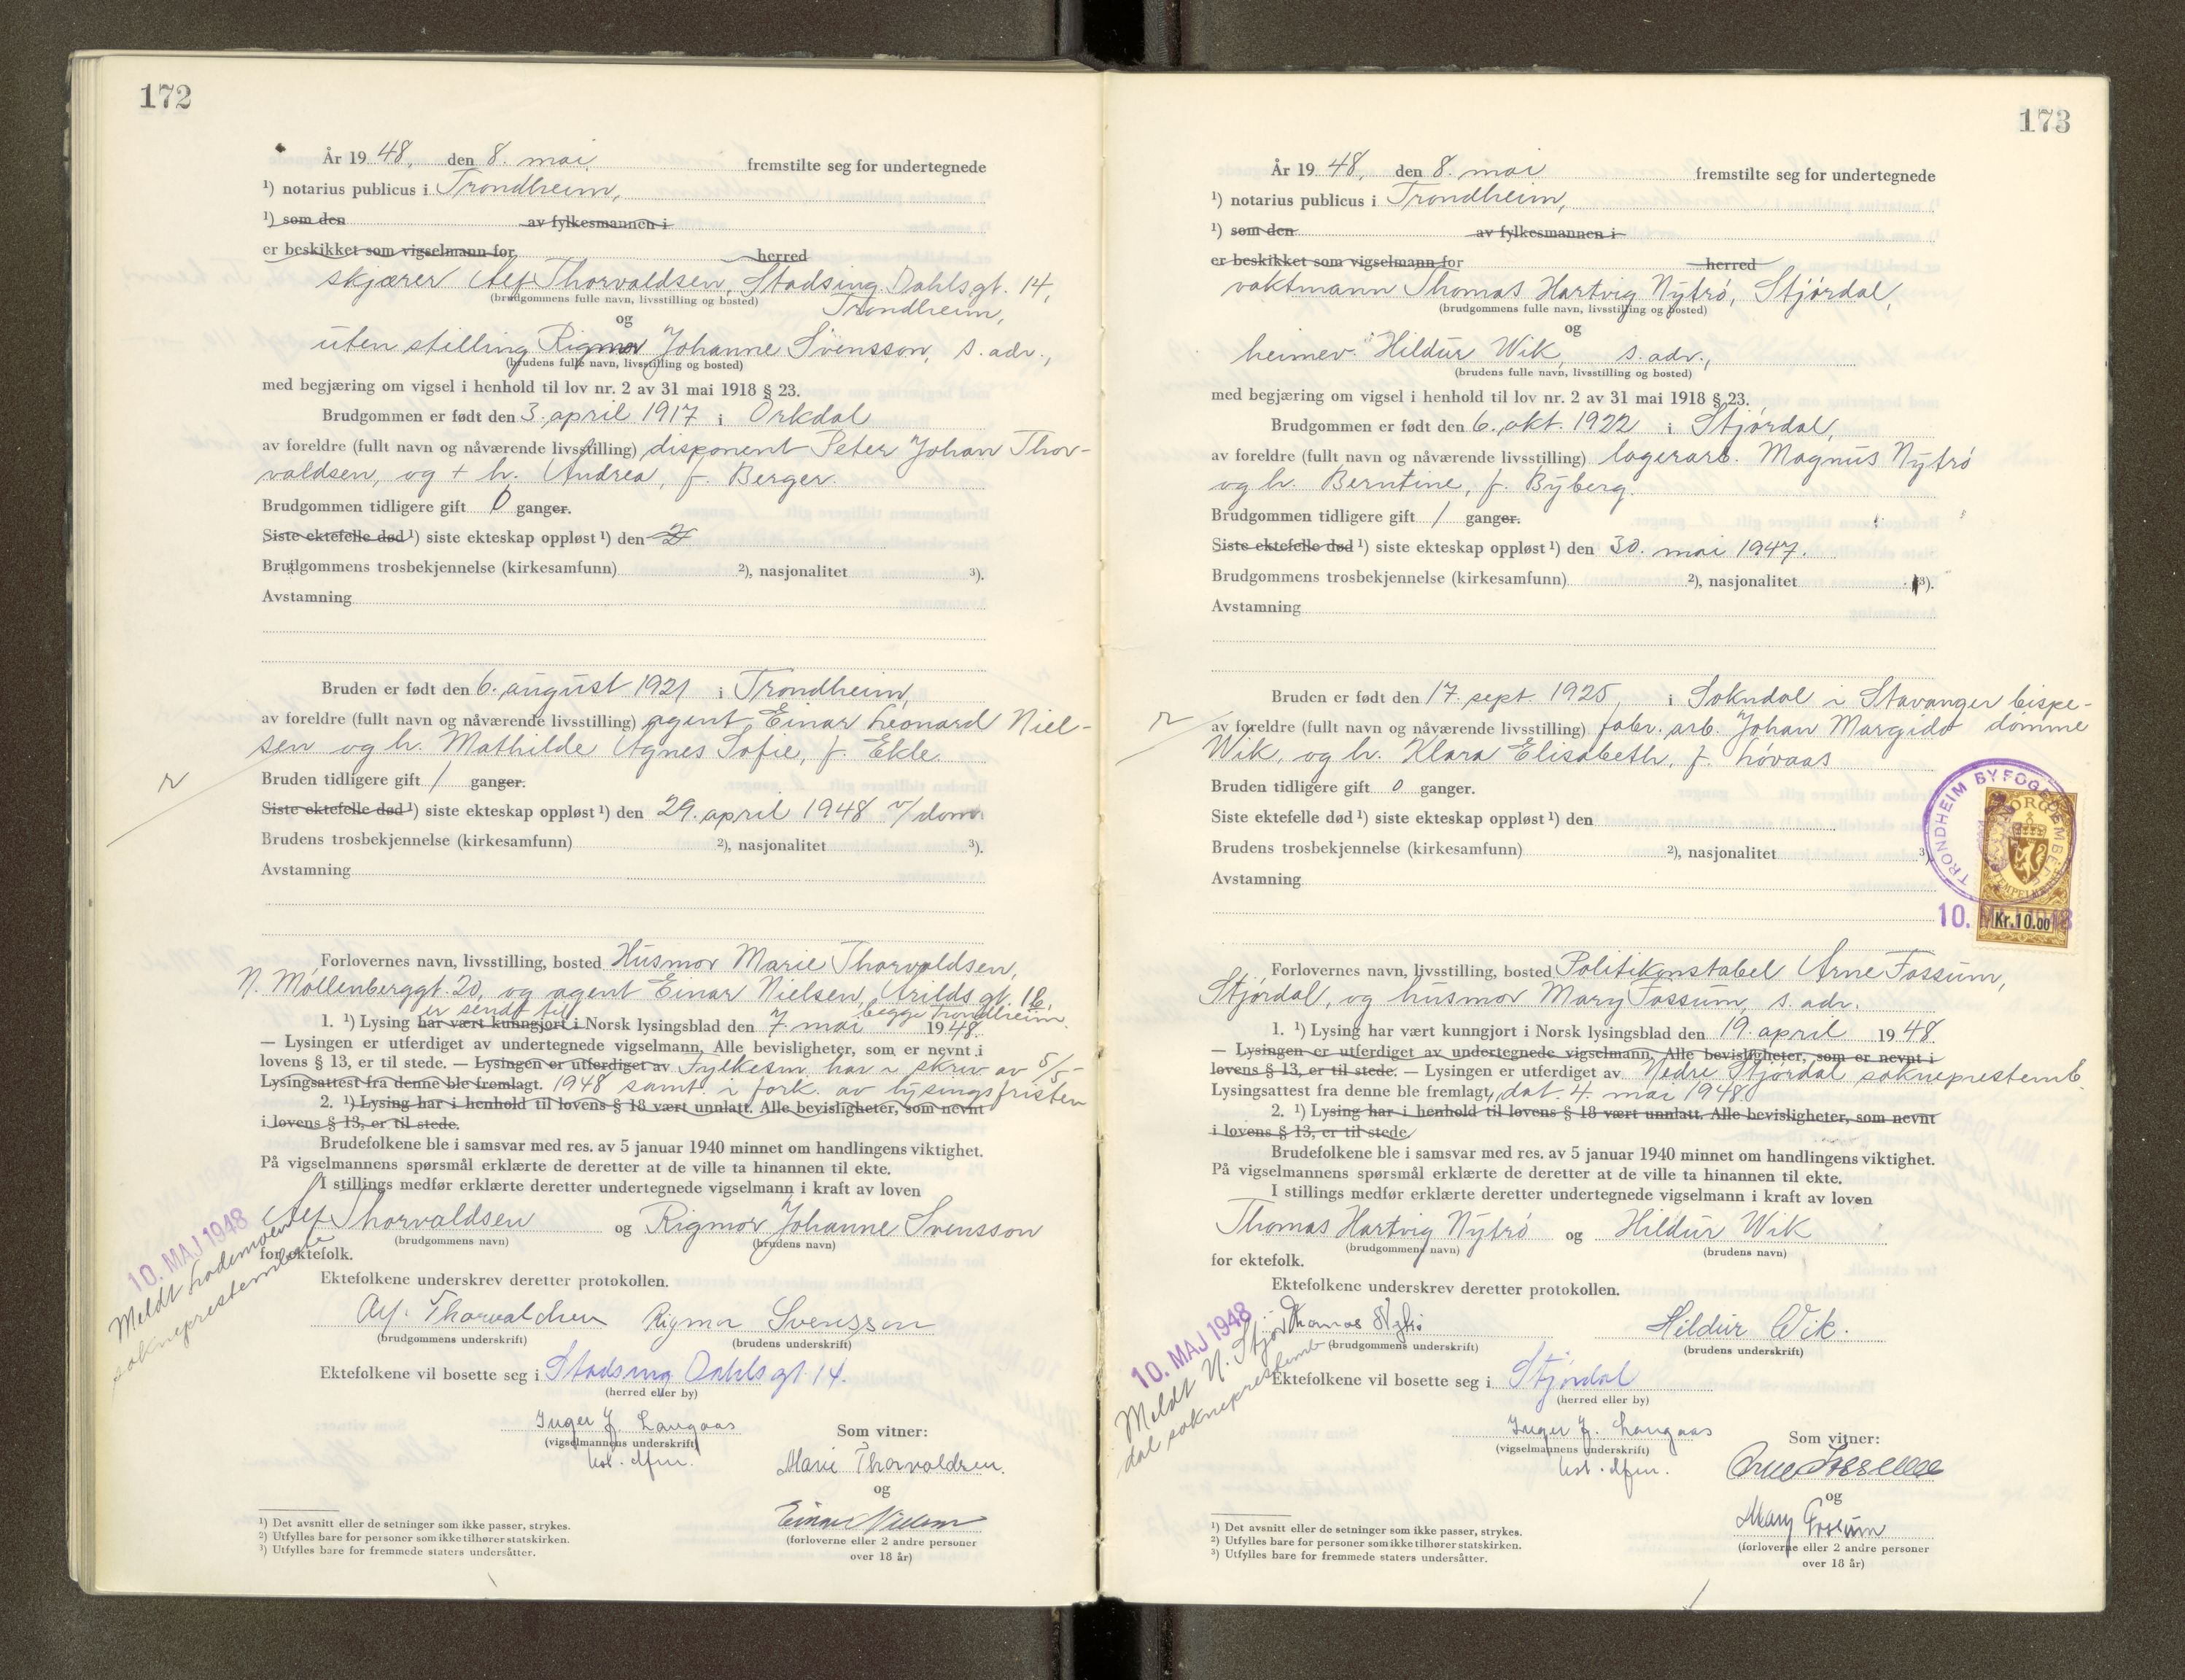 172
År 19 48, den 8. mai fremstilte seg for undertegnede
¹) notarius publicus i Trondheim,
¹) som den av fylkesmannen i
er beskikket som vigselmann for herred
skjærer Alf Thorvaldsen, Stadsing. Dahlsgt. 14,
(brudgommens fulle navn, livsstilling og bosted)
Trondheim,
og
uten stilling Rigmor Johanne Svensson, s. adr.,
(brudens fulle navn, livsstilling og bosted)
med begjæring om vigsel i henhold til lov nr. 2 av 31 mai 1918 § 23.
Brudgommen er født den 3. april 1917 i Orkdal
av foreldre (fullt navn og nåværende livsstilling) disponent Peter Johan Thor-
valdsen, og + h. Andrea, f. Berger.
Brudgommen tidligere gift 0 ganger.
Siste ektefelle død ¹) siste ekteskap oppløst ¹) den
Brudgommens trosbekjennelse (kirkesamfunn) ²), nasjonalitet ³).
Avstamning
Bruden er født den 6. august 1921 i Trondheim,
av foreldre (fullt navn og nåværende livsstilling) agent Einar Leonard Niel-
sen og h. Mathilde Agnes Sofie, f. Ekle.
Bruden tidligere gift 1 ganger.
Siste ektefelle død ¹) siste ekteskap oppløst ¹) den 29. april 1948 v/dom
Brudens trosbekjennelse (kirkesamfunn) ²), nasjonalitet ³).
Avstamning
Forlovernes navn, livsstilling, bosted Husmor Marie Thorvaldsen,
N. Møllenberggt. 20, og agent Einar Nielsen, Arilds gt. 16,
er sendt til begge Trondheim.
1. ¹) Lysing har vært kunngjort i Norsk lysingsblad den 7. mai 1948.
— Lysingen er utferdiget av undertegnede vigselmann. Alle bevisligheter, som er nevnt i
lovens § 13, er til stede. — Lysingen er utferdiget av Fylkesm. har i skriv av 5/5-
Lysingsattest fra denne ble fremlagt. 1948 samt. i fork. av lysingsfristen
2. ¹) Lysing har i henhold til lovens § 18 vært unnlatt. Alle bevisligheter, som nevnt
i lovens § 13, er til stede.
Brudefolkene ble i samsvar med res. av 5 januar 1940 minnet om handlingens viktighet.
På vigselmannens spørsmål erklærte de deretter at de ville ta hinannen til ekte.
I stillings medfør erklærte deretter undertegnede vigselmann i kraft av loven
Alf Thorvaldsen og Rigmor Johanne Svensson
(brudgommens navn) (brudens navn)
for ektefolk.
10. MAJ 1948
Meldt Lademoen
sokneprestembete
Ektefolkene underskrev deretter protokollen.
Alf. Thorvaldsen Rigmor Svensson
(brudgommens underskrift) (brudens underskrift)
Ektefolkene vil bosette seg i Stadsing Dahls gt. 14.
(herred eller by)
Inger J. Langaas
(vigselmannens underskrift)
Som vitner:
Marie Thorvaldsen.
og
Einar Nielsen
(forloverne eller 2 andre personer
over 18 år)
¹) Det avsnitt eller de setninger som ikke passer, strykes.
²) Utfylles bare for personer som ikke tilhører statskirken.
³) Utfylles bare for fremmede staters undersåtter.
173
År 19 48, den 8. mai fremstilte seg for undertegnede
¹) notarius publicus i Trondheim,
¹) som den av fylkesmannen i
er beskikket som vigselmann for herred
vaktmann Thomas Hartvig Nytrø, Stjørdal,
(brudgommens fulle navn, livsstilling og bosted)
og
heimev. Hildur Wik, s. adr.,
(brudens fulle navn, livsstilling og bosted)
med begjæring om vigsel i henhold til lov nr. 2 av 31 mai 1918 § 23.
Brudgommen er født den 6. okt. 1922 i Stjørdal,
av foreldre (fullt navn og nåværende livsstilling) lagerarb. Magnus Nytrø
og h. Berntine, f. Byberg.
Brudgommen tidligere gift 1 ganger.
Siste ektefelle død ¹) siste ekteskap oppløst ¹) den 30. mai 1947.
Brudgommens trosbekjennelse (kirkesamfunn) ²), nasjonalitet ³).
Avstamning
Bruden er født den 17. sept. 1925, i Sokndal i Stavanger bispe-
av foreldre (fullt navn og nåværende livsstilling) fabr. arb. Johan Margido dømme
Wik, og h. Klara Elisabeth, f. Løvaas
Bruden tidligere gift 0 ganger.
Siste ektefelle død ¹) siste ekteskap oppløst ¹) den
Brudens trosbekjennelse (kirkesamfunn) ²), nasjonalitet ³)
Avstamning
TRONDHEIM BYFOGDEMBETE
NORGE
STEMPELMERKE
10. MAJ 1948
Kr. 10.00
Forlovernes navn, livsstilling, bosted Politikonstabel Arne Fossum,
Stjørdal, og husmor Mary Fossum, s. adr.
1. ¹) Lysing har vært kunngjort i Norsk lysingsblad den 19. april 1948
— Lysingen er utferdiget av undertegnede vigselmann. Alle bevisligheter, som er nevnt i
lovens § 13, er til stede. — Lysingen er utferdiget av Nedre Stjørdal sokneprestemb.
Lysingsattest fra denne ble fremlagt, dat. 4. mai 1948.
2. ¹) Lysing har i henhold til lovens § 18 vært unnlatt. Alle bevisligheter, som nevnt
i lovens § 13, er til stede.
Brudefolkene ble i samsvar med res. av 5 januar 1940 minnet om handlingens viktighet.
På vigselmannens spørsmål erklærte de deretter at de ville ta hinannen til ekte.
I stillings medfør erklærte deretter undertegnede vigselmann i kraft av loven
Thomas Hartvig Nytrø og Hildur Wik
(brudgommens navn) (brudens navn)
for ektefolk.
Ektefolkene underskrev deretter protokollen.
10. MAJ 1948
Meldt N. Stjør-
dal sokneprestemb
Thomas Nytrø Hildur Wik.
(brudgommens underskrift) (brudens underskrift)
Ektefolkene vil bosette seg i Stjørdal
(herred eller by)
Inger J. Langaas
(vigselmannens underskrift)
Som vitner:
Arne Fossum
og
Mary Fossum
(forloverne eller 2 andre personer
over 18 år)
¹) Det avsnitt eller de setninger som ikke passer, strykes.
²) Utfylles bare for personer som ikke tilhører statskirken.
³) Utfylles bare for fremmede staters undersåtter.